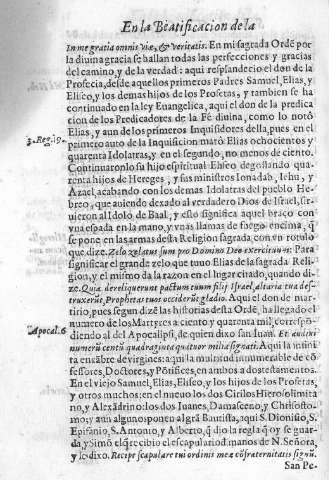 En la Beatificacion de la
In me gratia omnis viæ, & veritatis. En mi sagrada Ordẽ por
la divina gracia se hallan todas las perfecciones y gracias
del camino, y de la verdad: aqui respládecio el don de la
Profecia, desde aquellos primeros Padres Samuel, Elias, y
Eliseo, y los demas hijos de los Profetas, y tambien se ha
continuado en la ley Euangelica, aqui el don de la predica
cion de los Predicadores de la Fè diuina, como lo notò
Elias, y aun de los primeros Inquisidores della, pues en el
3. Reg. 19. primero auto de la Inquisicion matò Elias ochocientos y
quarenta Idolatras, y en el segundo, no menos de ciento.
Continuarõlo su hijo espiritual Eliseo degollando qua-
renta hijos de Hereges, y sus ministros Ionadab, Iehu, y
Azael, acabando con los demas Idolatras del pueblo He-
breo, que auiendo dexado al verdadero Dios de Israel, sir-
uieron al Idolo de Baal, y esso significa aquel braço con
vna espada en la mano, y vnas llamas de fuego encima, q̃
se pone en las armas desta Religion sagrada con vn rotulo
que dize. Zelo zelatus sum pro Domino Deo exercituum: Para
significar el grande zelo que tuuo Elias de la sagrada Reli-
gion, y el mismo da la razon en el lugar citado, quando di-
ze. Quia dereliquerunt pactum tuum filij Israel, altaria tua des-
truxerũt, Prophetas tuos occiderũt gladio. Aqui el don de mar-
tirio, pues segun dizẽ las historias desta Ordẽ, ha llegado el
numero de los Martyres a ciento y quarenta mil, correspõ
Apocal. 6 diendo al del Apocalipsi, de quien dixo san Iuan. Et audiui
numerũ centũ quadraginta quatuor milia signati. Aqui la infini
ta encãbre de virgines: aqui la multitud innumerable de cõ
fessores, Doctores, y Põtifices, en ambos a dos testamentos.
En el viejo Samuel, Elias, Eliseo, y los hijos de los Profetas,
y otros muchos: en el nueuo los dos Cirilos Hierosolimita
no, y Alexãdrino: los dos Iuanes, Damasceno, y Chrisosto-
mo; y aun algunos ponen al grã Bautista, aqui S. Dionisio, S.
Epifanio, S. Antonio, y Alberto, q̃ dio la regla q̃ oy se guar-
da, y Simõ el q̃ recibio el escapulario d̃ manos de N. Señora,
y le dixo. Recipe scapulare tui ordinis meæ cõfraternitatis signũ.
San Pe-